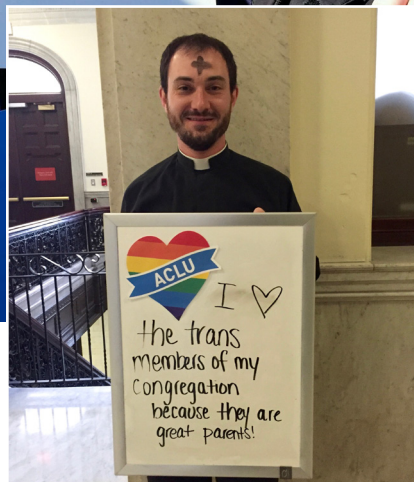 ACLU
I ♡
the trans
members of my
Congregation
because they are
great parents!